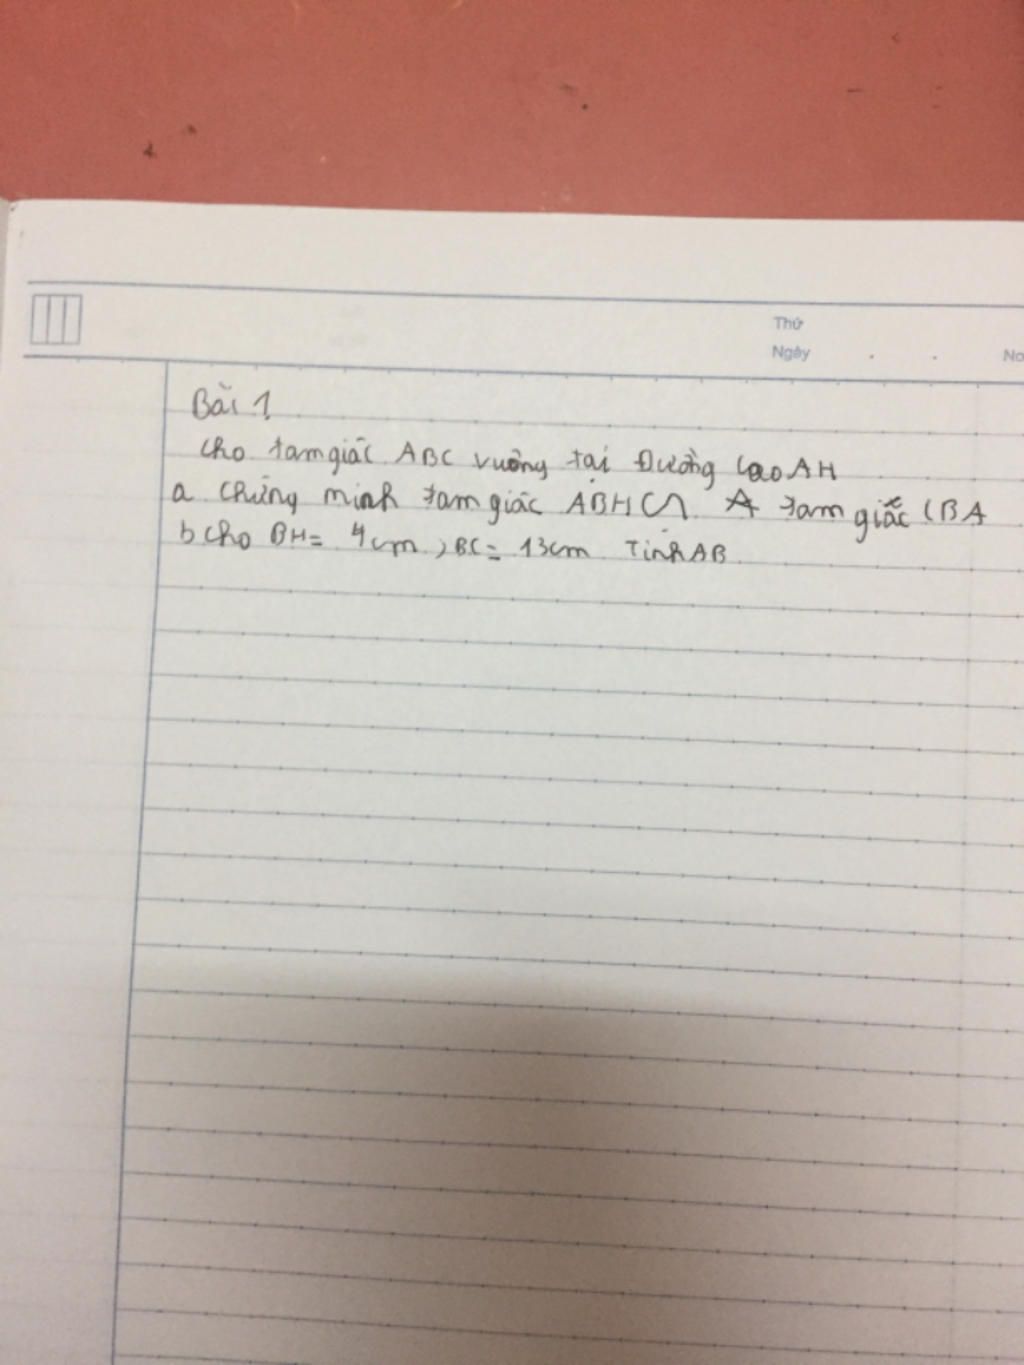 Thứ
Ngày
No
Bài 1
Cho tam giác ABC vuông tại Đường cao AH
a Chứng minh tam giác ABH ᔕ A tam giác CBA
b Cho BH = 4cm, BC = 13cm Tính AB